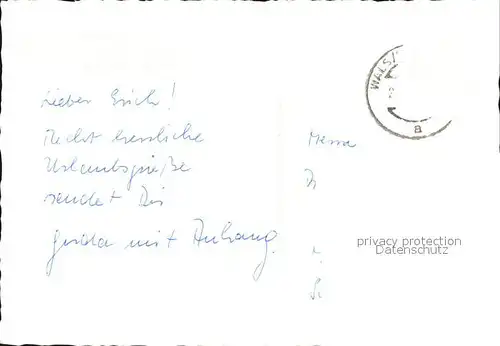 Lieber Erich!
Recht herzliche
Urlaubsgrüße
sendet Dir
Gerda mit Anhang.
WALS
a
privacy protection
Datenschutz